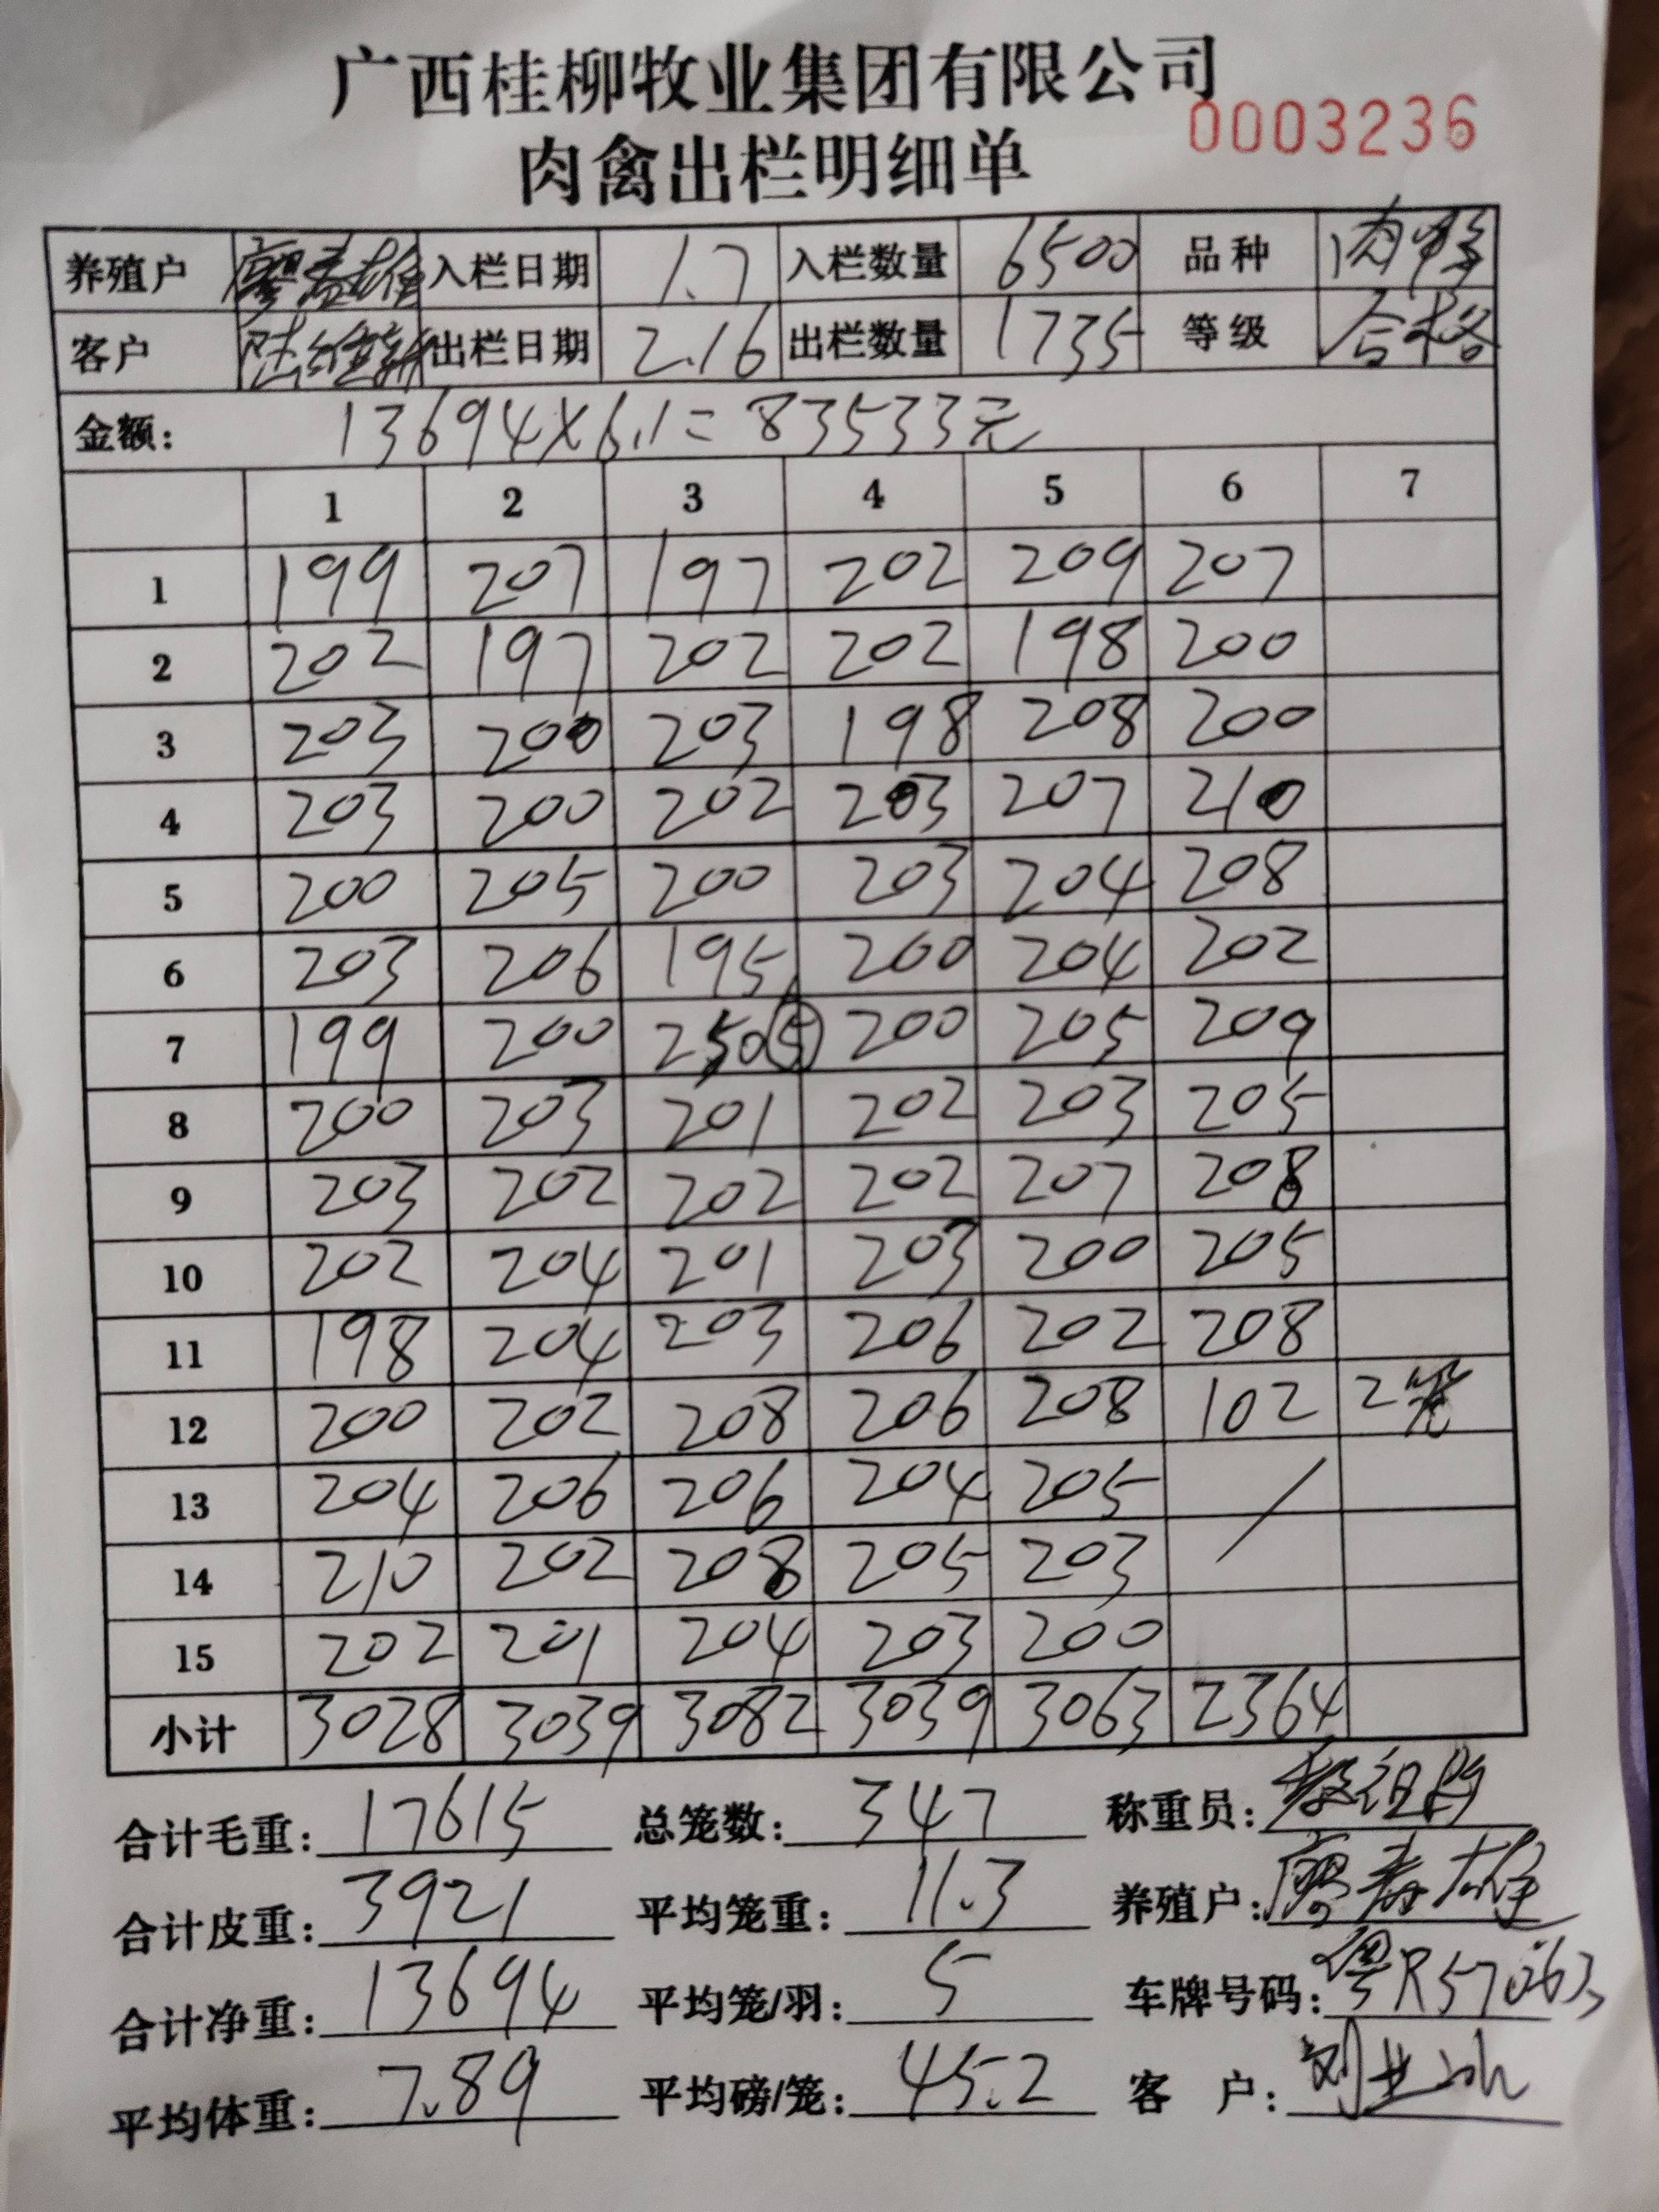 广西桂柳牧业集团有限公司
0003236
肉禽出栏明细单
养殖户 廖寿雄 入栏日期 1.7 入栏数量 6500 品种 肉鸭
客户 出栏日期 2.16 出栏数量 1735 等级 合格
金额: 13694×6.1=83533元
1 2 3 4 5 6 7
1 199 207 197 202 209 207
2 202 197 202 202 198 200
3 203 200 203 198 208 200
4 203 200 202 203 207 210
5 200 205 200 203 204 208
6 203 206 195 200 204 202
7 199 200 250 5 200 205 209
8 200 203 201 202 203 205
9 203 202 202 202 207 208
10 202 204 201 203 200 205
11 198 204 203 206 202 208
12 200 202 208 206 208 102 2笼
13 204 206 206 204 205 /
14 210 202 208 205 203
15 202 201 204 203 200
小计 3028 3039 3082 3039 3063 2364
合计毛重: 17615 总笼数: 347 称重员:
合计皮重: 3921 平均笼重: 11.3 养殖户: 廖寿雄
合计净重: 13694 平均笼/羽: 5 车牌号码: 粤R57063
平均体重: 7.89 平均磅/笼: 45.2 客 户: